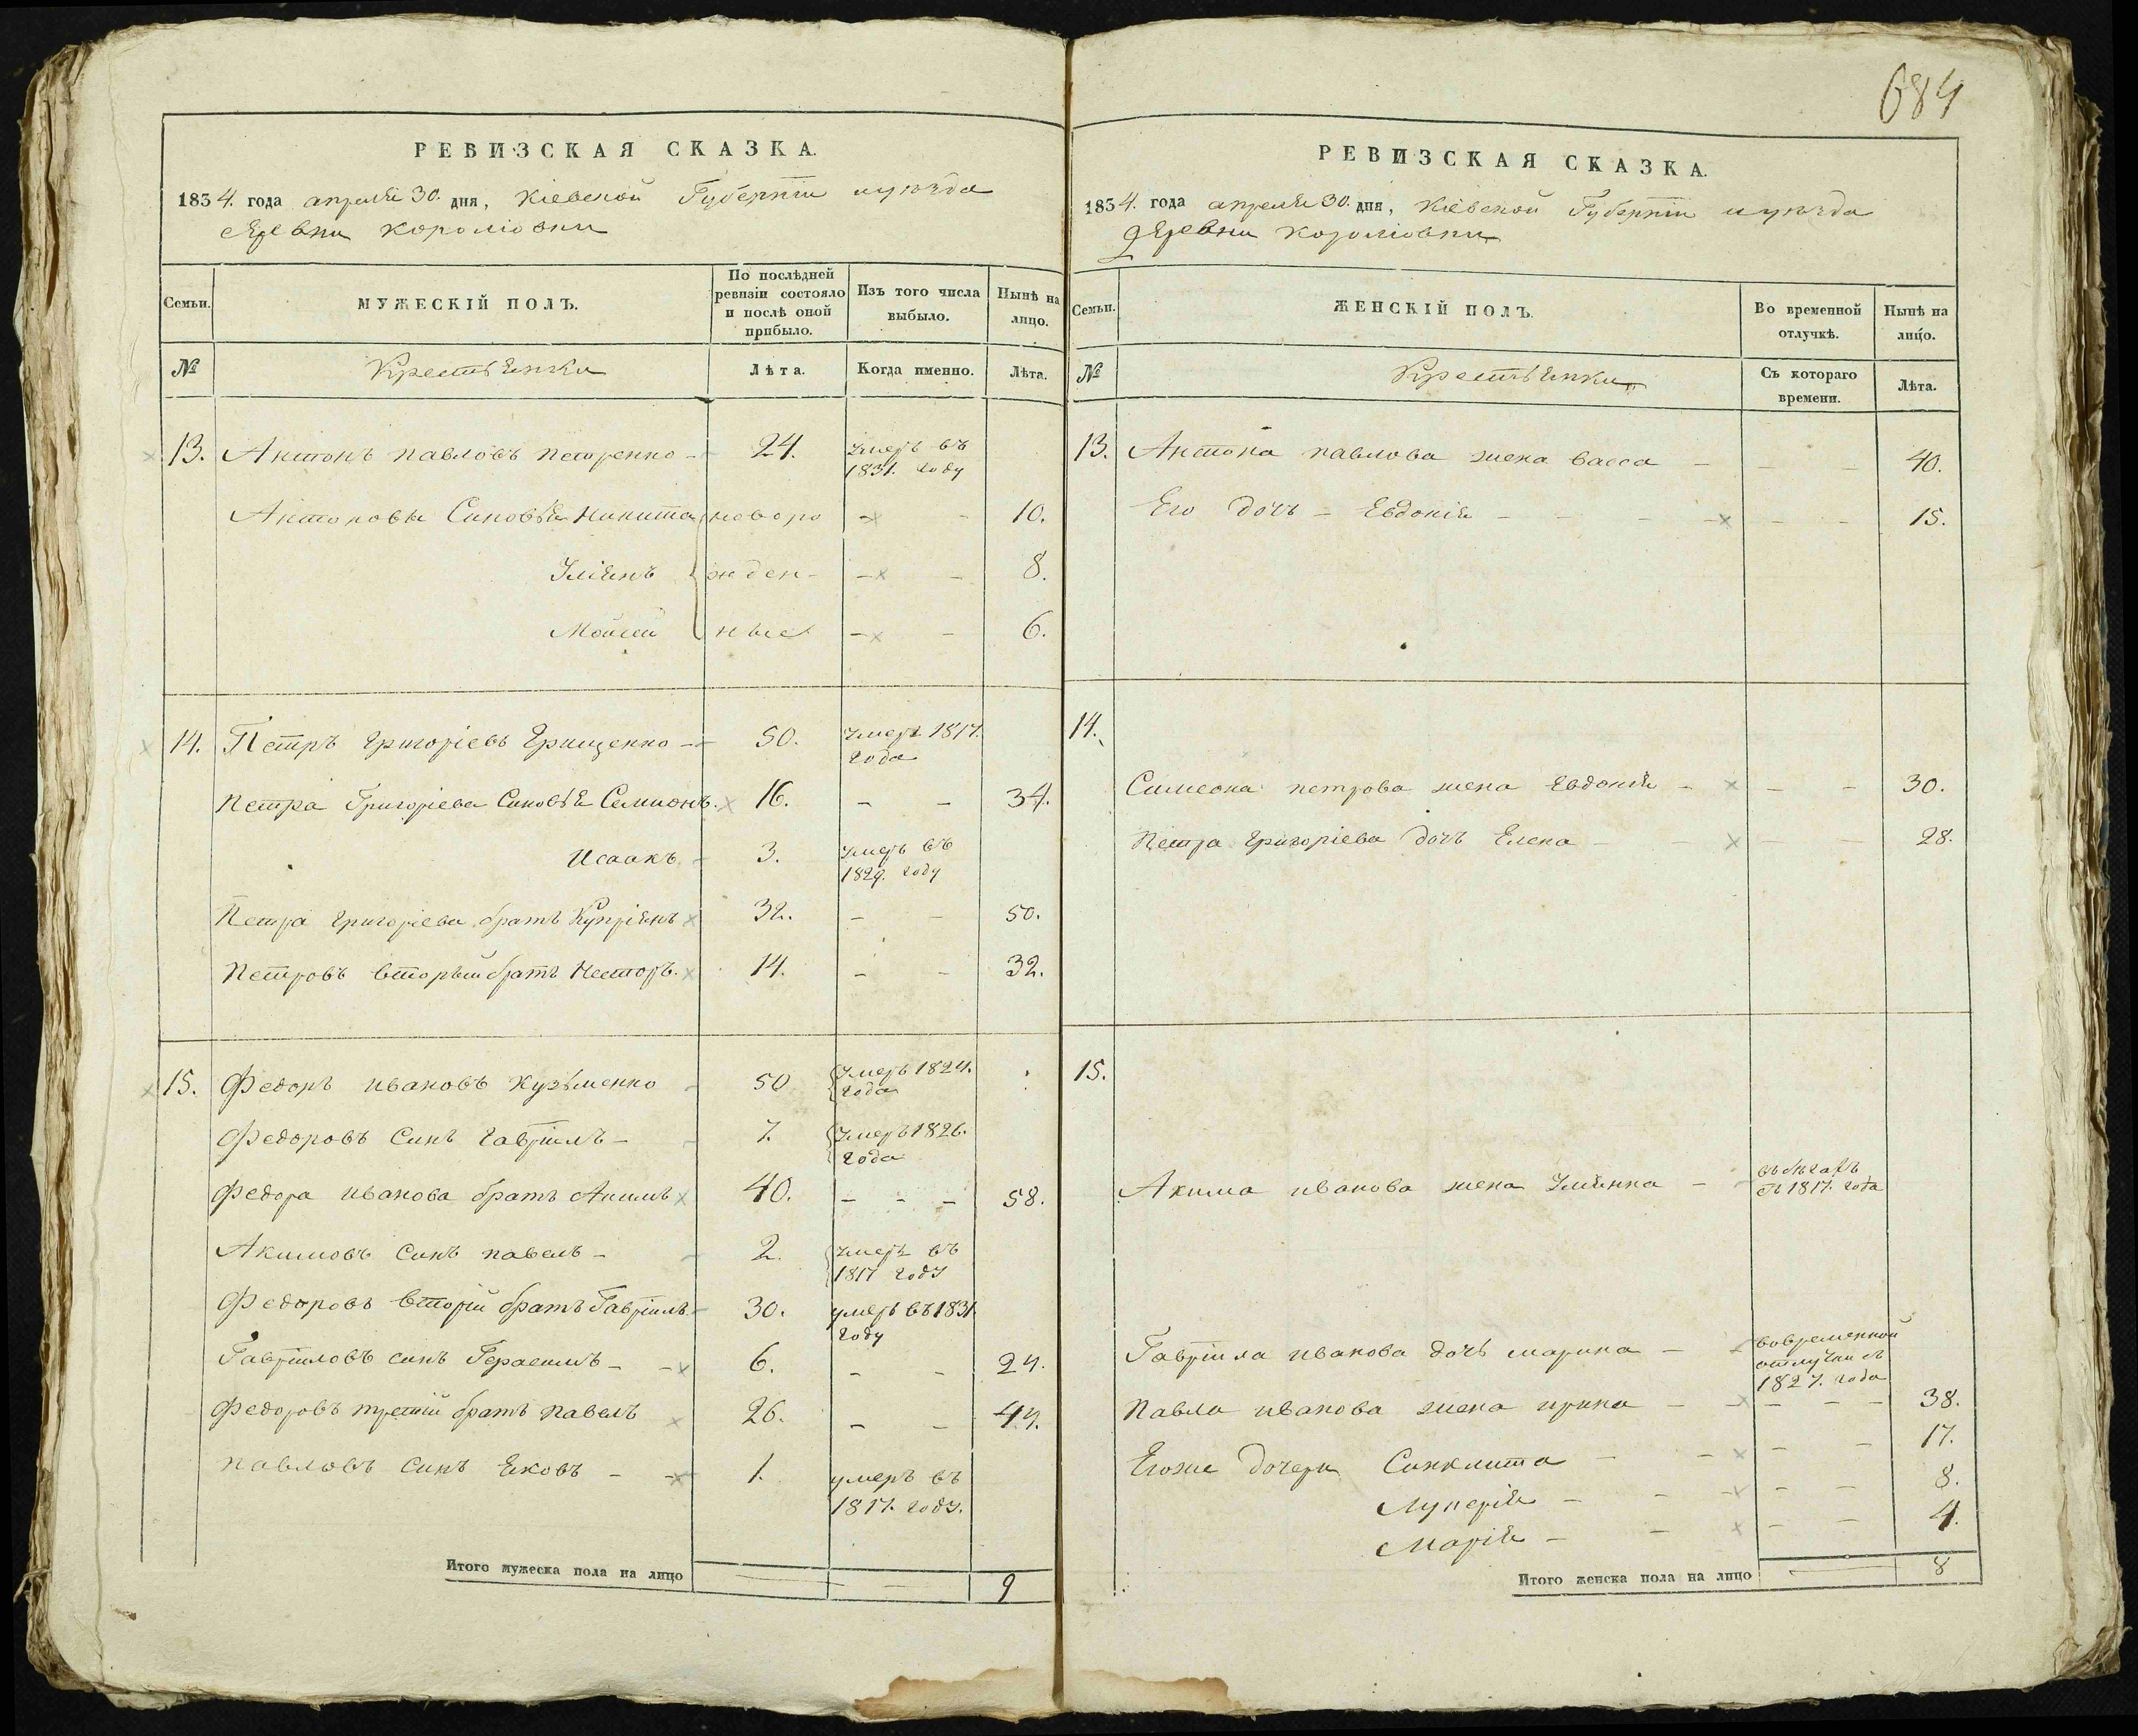 684
РЕВИЗСКАЯ СКАЗКА.
1834. года апреля 30. дня, Кіевской Губерніи и уѣзда
деревни Королювки
Семьи.
МУЖЕСКІЙ ПОЛЪ.
По послѣдней ревизіи состояло и послѣ оной прибыло.
Изъ того числа выбыло.
Нынѣ на лицо.
№
Лѣта.
Когда именно.
Лѣта.
13. Антонъ павловъ петренко - 24. Умеръ въ 1831. году
Антоновы Синовъя Никита новоро - - 10.
Уліянъ жден- - - 8.
Мойсей ные - - 6.
14. Петръ григоріевъ Грищенко - 50. Умеръ 1817. года
петра Григоріева Синовъя Семионъ. 16. - - 34.
Исаакъ - 3. Умеръ въ 1829. году
Петра григоріева братъ Купріянъ 32. - - 50.
Петровъ вторый братъ Несторъ. 14. - - 32.
15. Федоръ ивановъ Кузьменко - 50 Умеръ 1824. года
Федоровъ Синъ гавріилъ - 7. Умеръ 1826. года
Федора иванова братъ Акимъ 40. - - - 58.
Акимовъ Синъ павелъ - 2. Умеръ въ 1817 году
Федоровъ вторій братъ Гавріилъ - 30. умеръ въ 1831. году
Гавріиловъ синъ Герасимъ - - 6. - - 24.
Федоровъ третій братъ павелъ 26. - - 44.
павловъ Синъ Яковъ - - 1. умеръ въ 1817. году.
Итого мужеска пола на лицо 9
РЕВИЗСКАЯ СКАЗКА.
1834. года апреля 30. дня, Кіевской Губерніи и уѣзда
деревни Королювки
Семьи.
ЖЕНСКІЙ ПОЛЪ.
Во временной отлучкѣ.
Нынѣ на лицо.
№
Съ котораго времени.
Лѣта.
13. Антона павлова жена васса - - - 40.
Его дочъ - Евдокія - - - - - - 15.
14.
Симеона петрова жена Евдокія - - - 30.
Петра григоріева дочъ Елена - - - - 28.
15.
Акима иванова жена Уліянна - въ бѣгахъ съ 1817. года
Гавріила иванова дочь марина - вовременной отлучки съ 1827. года
Павла иванова жена ирина - - - - - 38.
Егоже дочери Синклита - - - - 17.
Лукерія - - - - - 8.
Марія - - - - 4.
Итого женска пола на лицо 8